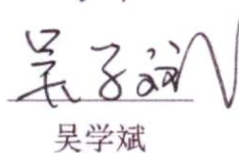 吴学斌
吴学斌